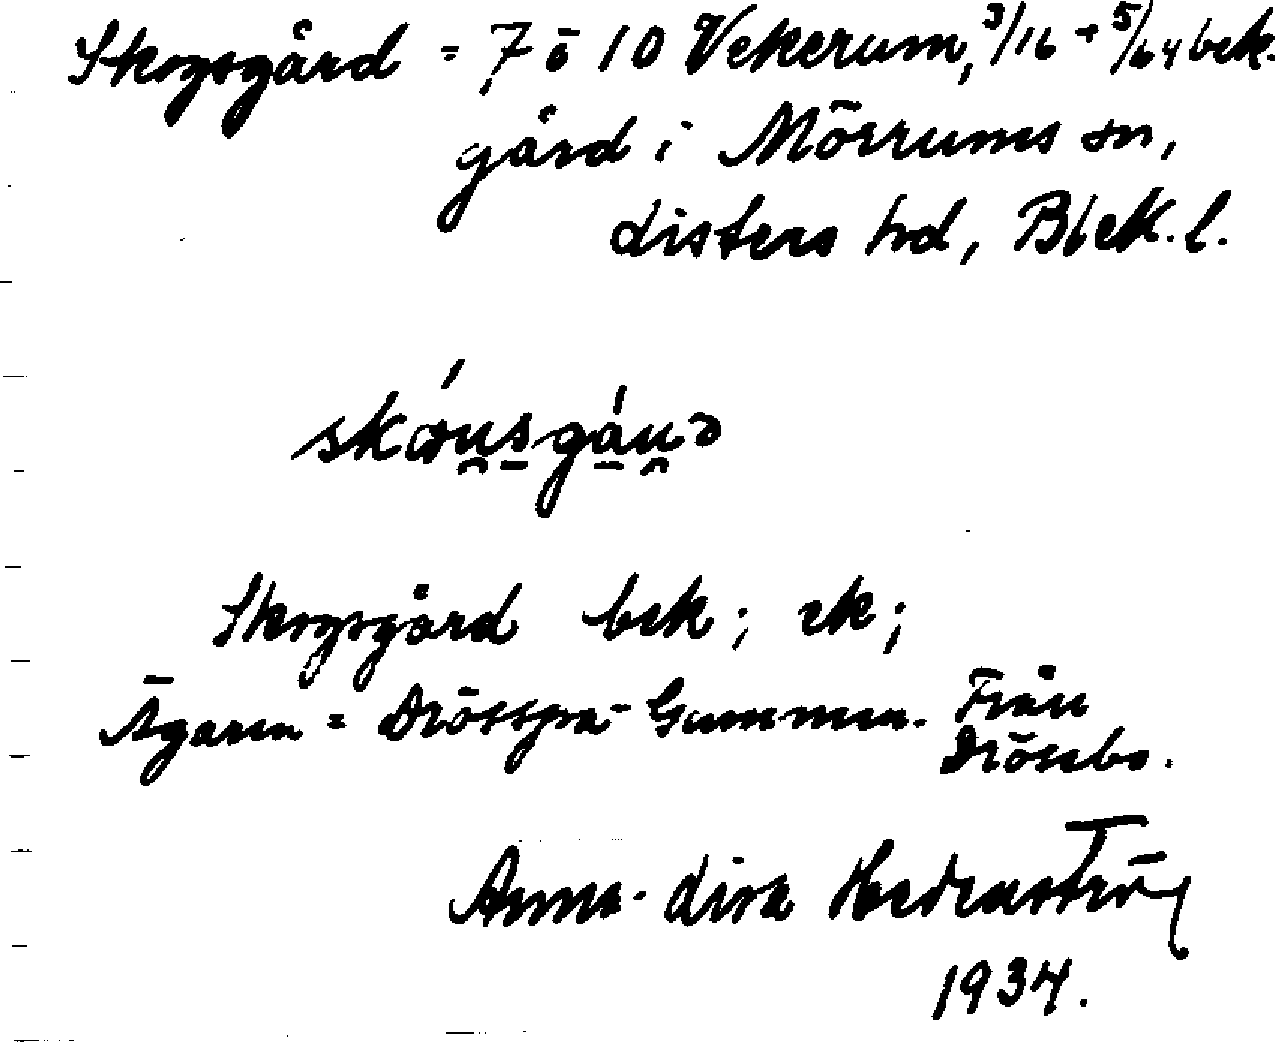 Skogsgård = 7 ö 10 Vekerum, 3/16 + 5/64 bek.
gård i Mörrums sn,
Listers hd, Blek. l.
Skogsgård bek; ek;
Ägaren = Drösspa- Gummen. Från
Drössbo.
Anna-Lisa Hedenström
1934.